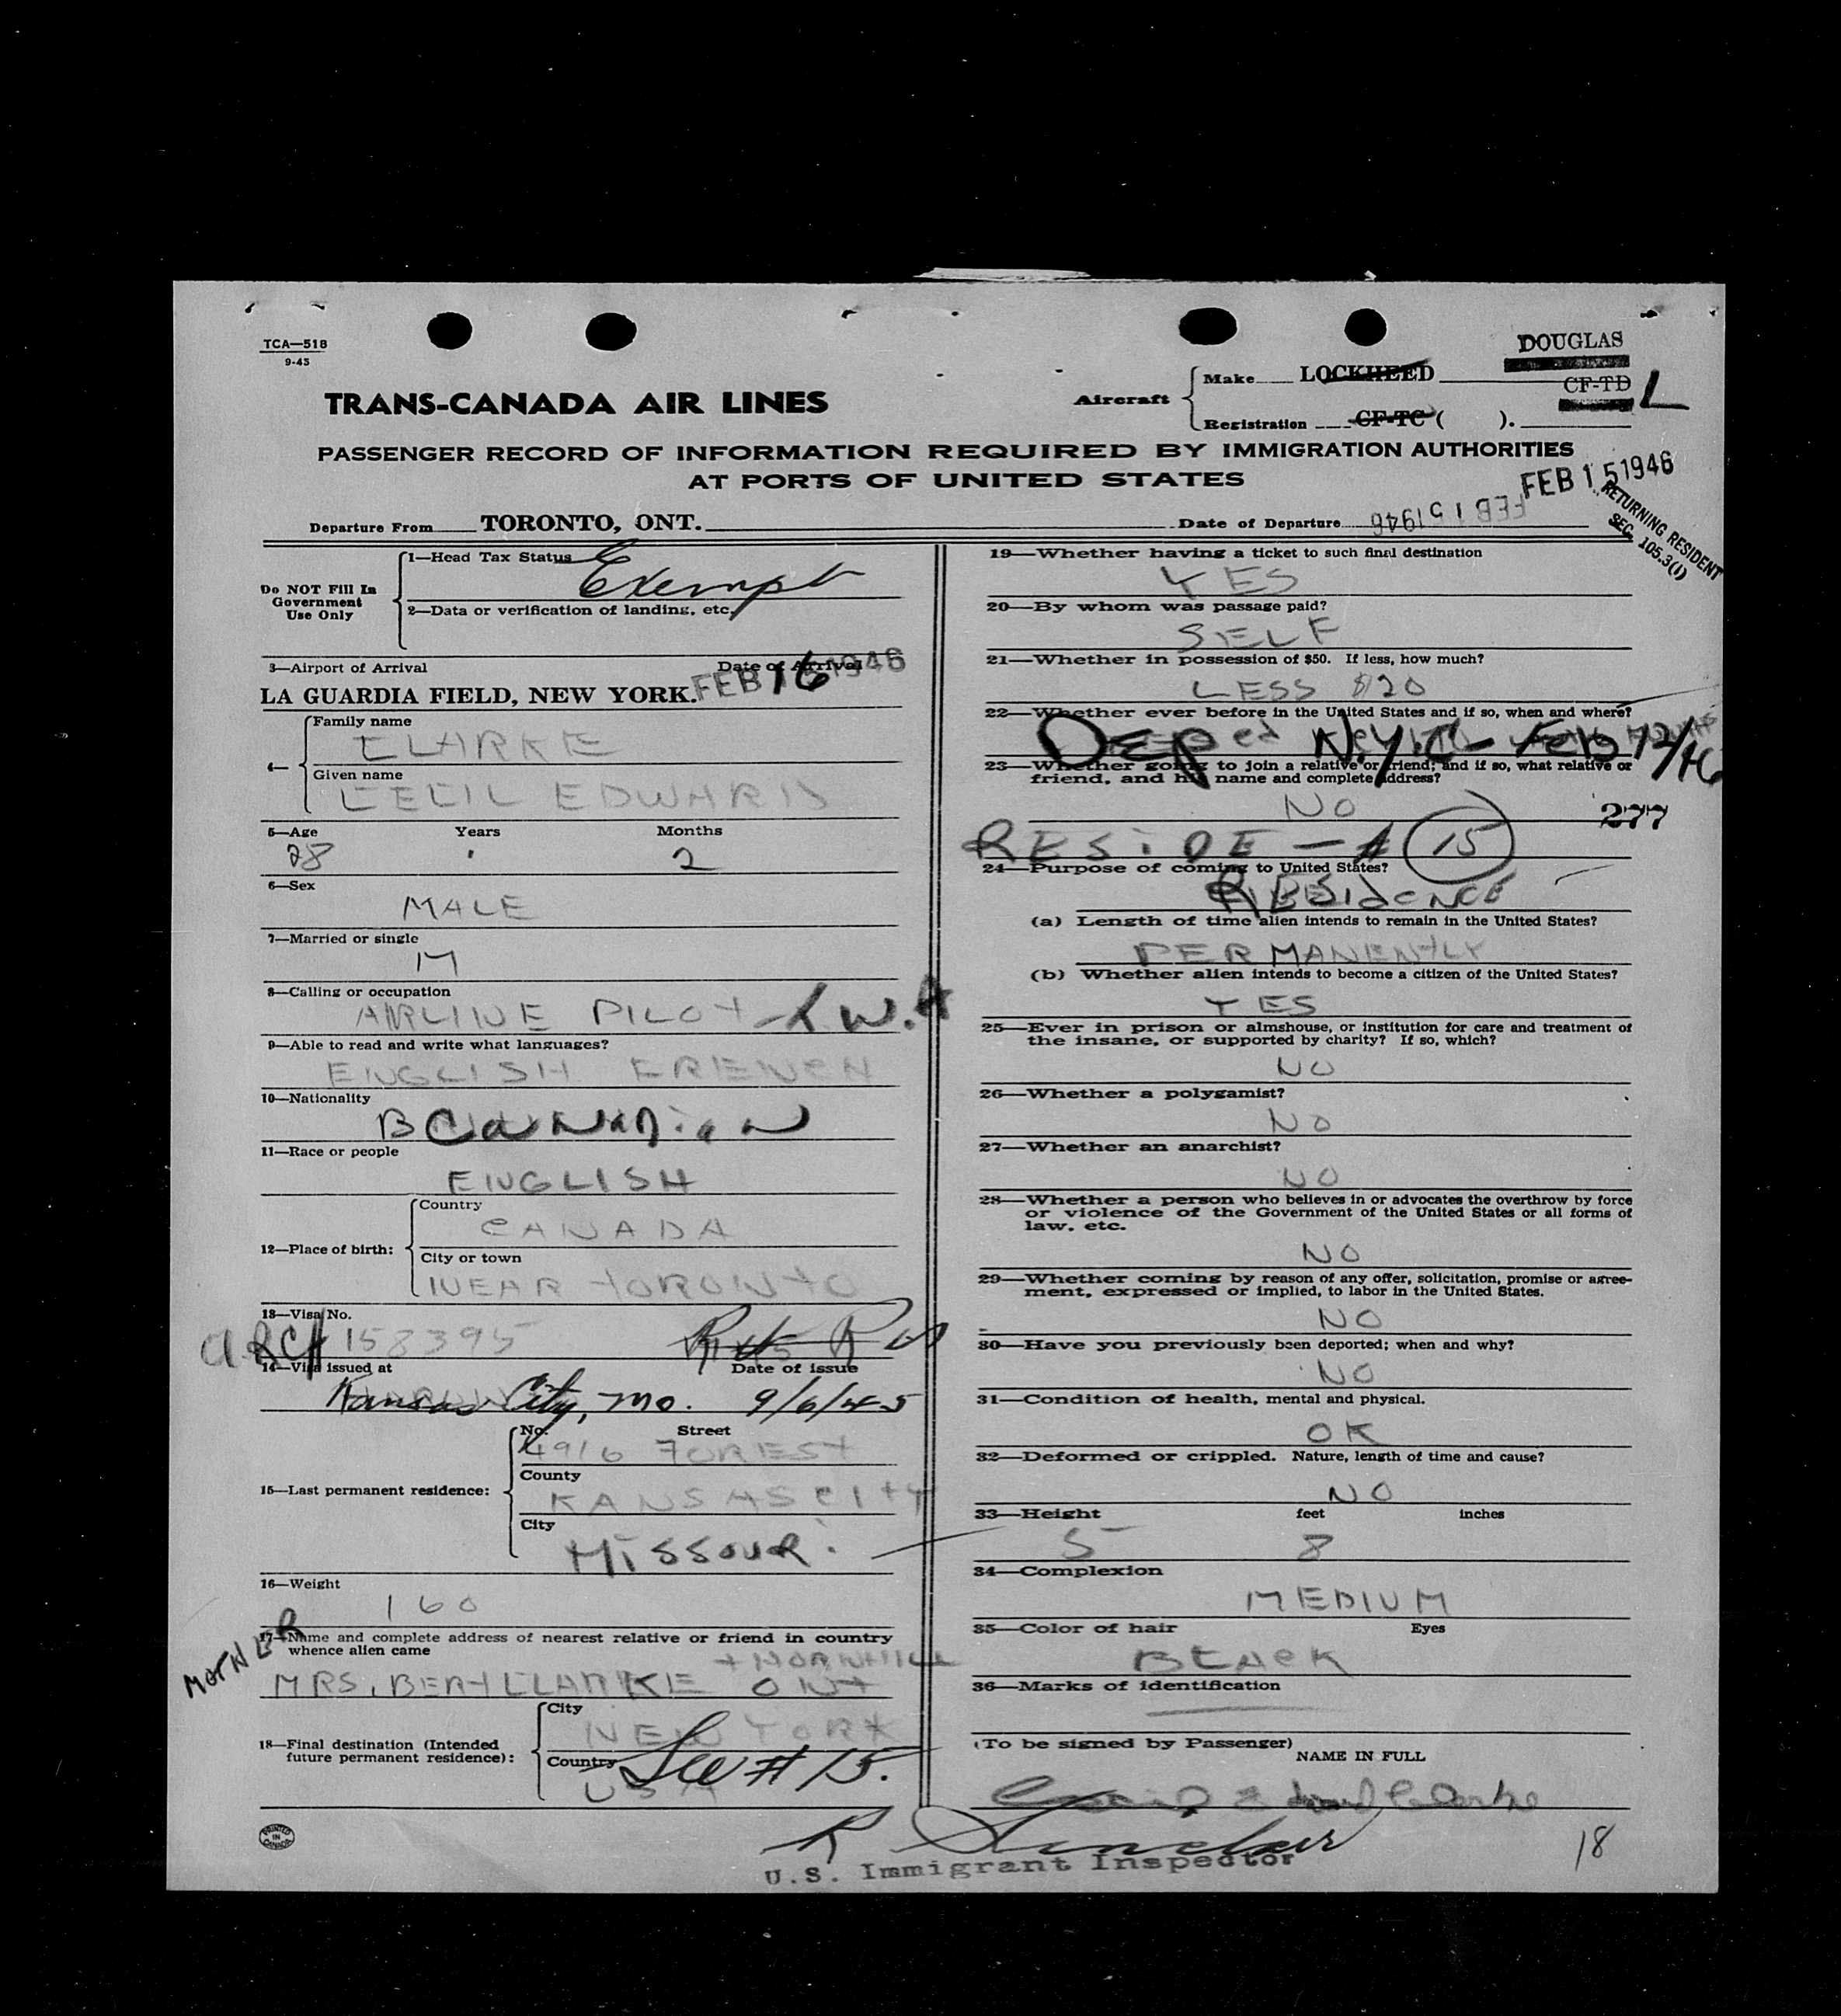 TCA—518
9-45
DOUGLAS
TRANS-CANADA AIR LINES
Aircraft
Make LOCKHEED
CF-TD L
Registration CF-TC ( ).
PASSENGER RECORD OF INFORMATION REQUIRED BY IMMIGRATION AUTHORITIES
AT PORTS OF UNITED STATES
FEB 15 1946
RETURNING RESIDENT
SEC. 105.3(1)
Departure From TORONTO, ONT. Date of Departure FEB 15 1946
Do NOT Fill In
Government
Use Only
1—Head Tax Status
Exempt
2—Data or verification of landing, etc.
3—Airport of Arrival Date of Arrival
LA GUARDIA FIELD, NEW YORK. FEB 16 1946
4—
Family name
CLARKE
Given name
CECIL EDWARD
5—Age Years Months
28 2
6—Sex
MALE
7—Married or single
M
8—Calling or occupation
AIRLINE PILOT - T.W.A
9—Able to read and write what languages?
ENGLISH FRENCH
10—Nationality
B Canadian
11—Race or people
ENGLISH
12—Place of birth:
Country
CANADA
City or town
NEAR TORONTO
13—Visa No.
A.R.C# 158395
14—Visa issued at Date of issue
Kansas City, Mo. 9/6/45
15—Last permanent residence:
No. Street
4916 FOREST
County
KANSAS CITY
City
MISSOURI
16—Weight
160
17—Name and complete address of nearest relative or friend in country
whence alien came
MOTHER
THORNHILL
MRS. BEAT CLARKE ONT
18—Final destination (Intended
future permanent residence):
City
NEW YORK
Country
USA
See # 15.
19—Whether having a ticket to such final destination
YES
20—By whom was passage paid?
SELF
21—Whether in possession of $50. If less, how much?
LESS $20
22—Whether ever before in the United States and if so, when and where?
Deped N.Y.C - Feb 12/46
23—Whether going to join a relative or friend; and if so, what relative or
friend, and his name and complete address?
NO
277
RESIDE - # 15
24—Purpose of coming to United States?
RESIDENCE
(a) Length of time alien intends to remain in the United States?
PERMANENTLY
(b) Whether alien intends to become a citizen of the United States?
YES
25—Ever in prison or almshouse, or institution for care and treatment of
the insane, or supported by charity? If so, which?
NO
26—Whether a polygamist?
NO
27—Whether an anarchist?
NO
28—Whether a person who believes in or advocates the overthrow by force
or violence of the Government of the United States or all forms of
law, etc.
NO
29—Whether coming by reason of any offer, solicitation, promise or agree-
ment, expressed or implied, to labor in the United States.
NO
30—Have you previously been deported; when and why?
NO
31—Condition of health, mental and physical.
OK
32—Deformed or crippled. Nature, length of time and cause?
NO
33—Height feet inches
5 8
34—Complexion
MEDIUM
35—Color of hair Eyes
BLACK
36—Marks of identification
(To be signed by Passenger)
NAME IN FULL
Cecil Edward Clarke
PRINTED IN CANADA
R Sinclair
U.S. Immigrant Inspector
18